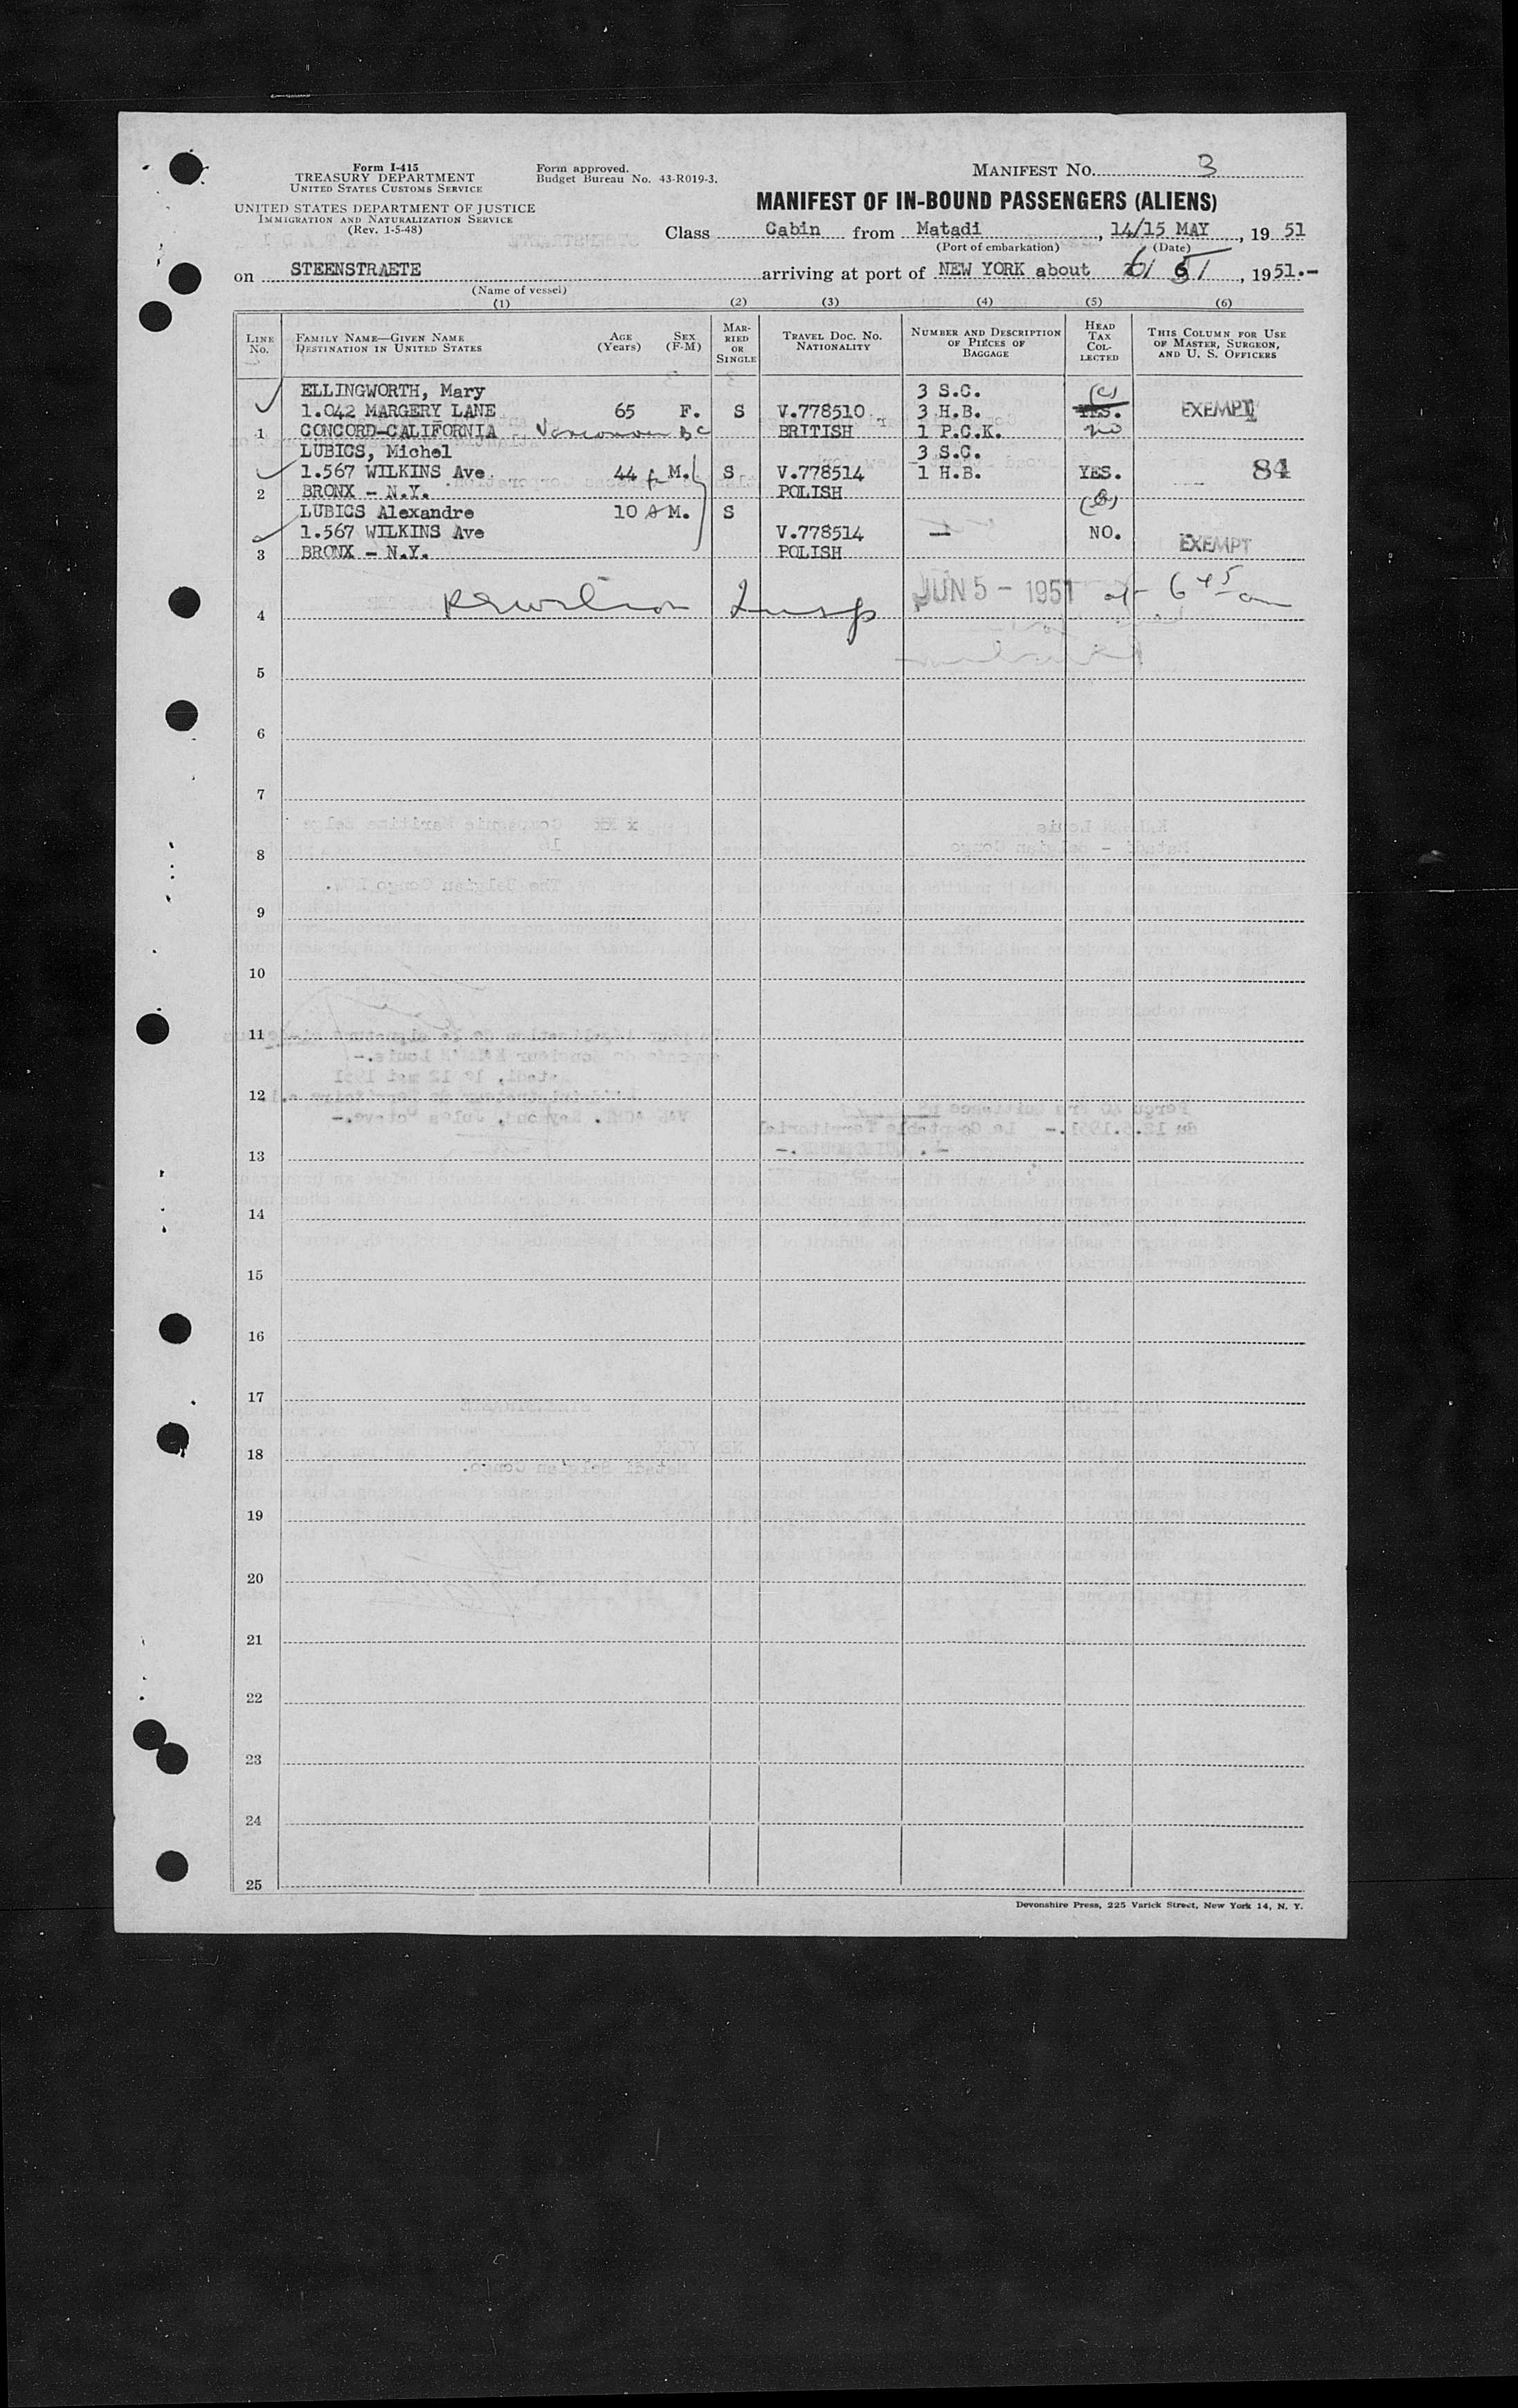 Form I-415
TREASURY DEPARTMENT
UNITED STATES CUSTOMS SERVICE
UNITED STATES DEPARTMENT OF JUSTICE
IMMIGRATION AND NATURALIZATION SERVICE
(Rev. 1-5-48)
Form approved.
Budget Bureau No. 43-R019-3.
MANIFEST No. 3
MANIFEST OF IN-BOUND PASSENGERS (ALIENS)
Class Cabin from Matadi, 14/15 MAY, 19 51
(Port of embarkation) (Date)
on STEENSTRAETE arriving at port of NEW YORK about 6/5/, 1951.-
(Name of vessel)
(1) (2) (3) (4) (5) (6)
LINE No.
FAMILY NAME—GIVEN NAME
DESTINATION IN UNITED STATES
AGE (Years)
SEX (F-M)
MARRIED OR SINGLE
TRAVEL DOC. NO.
NATIONALITY
NUMBER AND DESCRIPTION OF PIECES OF BAGGAGE
HEAD TAX COLLECTED
THIS COLUMN FOR USE OF MASTER, SURGEON, AND U. S. OFFICERS
ELLINGWORTH, Mary 3 S.C. (c)
1.042 MARGERY LANE 65 F. S V.778510 3 H.B. YES. EXEMPT
1 CONCORD-CALIFORNIA Vancouver BC BRITISH 1 P.C.K. no
LUBICS, Michel 3 S.C.
1.567 WILKINS Ave 44 M. S V.778514 1 H.B. YES. 84
2 BRONX - N.Y. POLISH
LUBICS Alexandre 10 M. S
1.567 WILKINS Ave V.778514 — NO. EXEMPT
3 BRONX - N.Y. POLISH
4 Insp JUN 5 - 1951 at 6 45 am
5
6
7
8
9
10
11
12
13
14
15
16
17
18
19
20
21
22
23
24
25
Devonshire Press, 225 Varick Street, New York 14, N. Y.